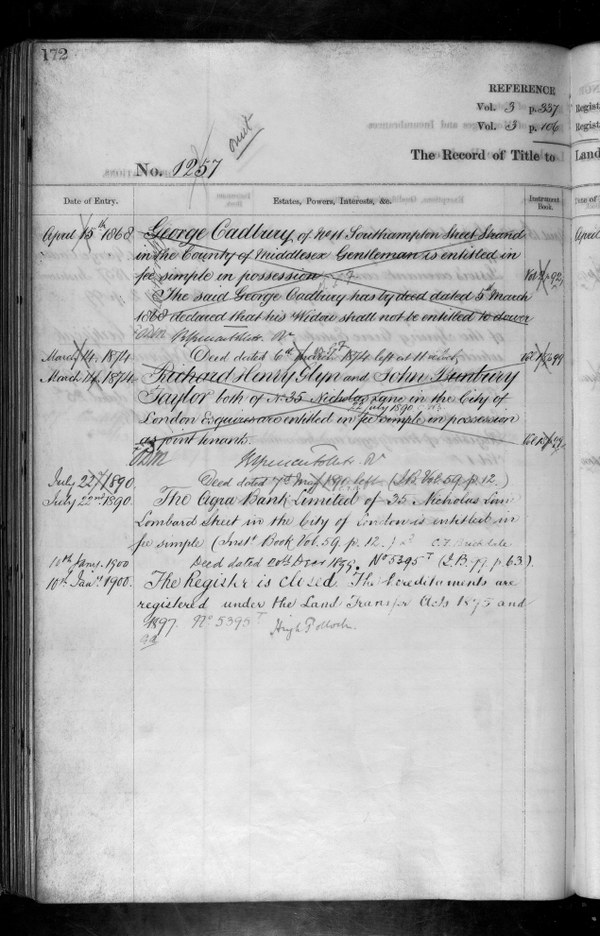 172
REFERENCE
Vol. 3 p. 337
Vol. 3 p. 106
omit
No. 1257
The Record of Title to
Land
Date of Entry.
Estates, Powers, Interests, &c.
Instrument Book.
April 15th 1868
George Cadbury of No 11 Southampton Street Strand
in the County of Middlesex Gentleman is entitled in
fee simple in possession
The said George Cadbury has by deed dated 5th March
1868 declared that his Widow shall not be entitled to dower
March 14. 1874
Deed dated 6th March 1874 left at
March 14. 1874
Richard Henry Glyn and John Bunbury
Taylor both of No 35 Nicholas Lane in the City of
22 July 1890
London Esquires are entitled in fee simple in possession
as joint tenants.
July 22nd 1890.
Deed dated 7th May 1890 left (I.B. Vol. 59. p. 12.)
July 22nd 1890.
The Agra Bank Limited of 35 Nicholas Lane
Lombard Street in the City of London is entitled in
fee simple (Inst. Book Vol. 59. p. 12.)
10th Jany. 1900
Deed dated 20th Decr 1899. No 5395 T (I.B. 99. p. 63.)
10th Jany. 1900.
The Register is closed The hereditaments are
registered under the Land Transfer Acts 1875 and
1897. No 5395 T Hugh Pollock.
April